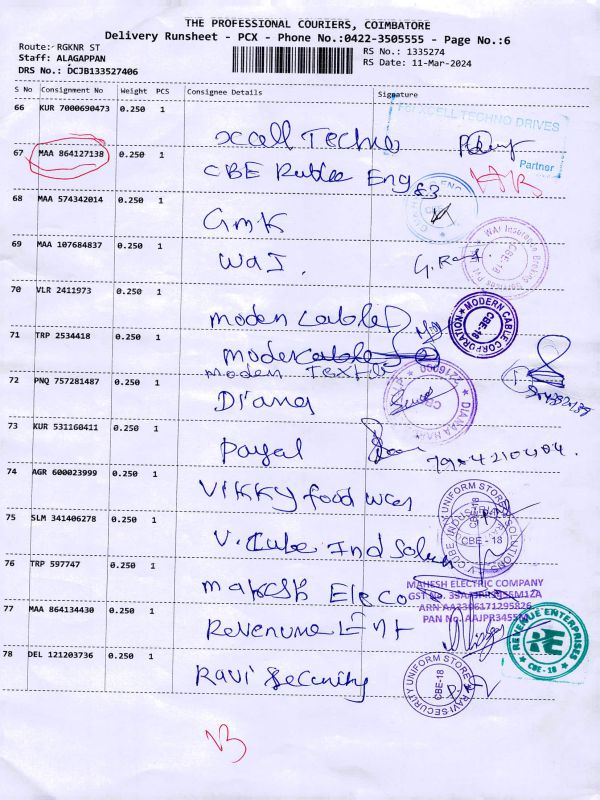 THE PROFESSIONAL COURIERS, COIMBATORE
Delivery Runsheet - PCX - Phone No.:0422-3505555 - Page No.:6
Route: RGKNR ST
RS No.: 1335274
Staff: ALAGAPPAN
RS Date: 11-Mar-2024
DRS No.: DCJB133527406
S No Consignment No Weight PCS Consignee Details Signature
66 KUR 7000690473 0.250 1
For XCELL TECHNO DRIVES
Partner
67 MAA 864127138 0.250 1
CBE Eng
68 MAA 574342014 0.250 1
GMK
69 MAA 107684837 0.250 1
WAI.
WAI Insurance Broking Services Pvt
CBE-18
70 VLR 2411973 0.250 1
moden cable
MODERN CABLE CORPORATION
CBE-18
71 TRP 2534418 0.250 1
moden Textile
72 PNQ 757281487 0.250 1
Diana
73 KUR 531160411 0.250 1
Payal
74 AGR 600023999 0.250 1
VIKKY food
V.UNIFORM STORES
75 SLM 341406278 0.250 1
V. Cube Ind Solu
V.CUBE INDUSTRIAL SOLUTIONS
CBE - 18
76 TRP 597747 0.250 1
MAHESH ELECTRIC COMPANY
77 MAA 864134430 0.250 1
REVENUE ENTERPRISES
RE
CBE-18
78 DEL 121203736 0.250 1
Ravi Security
RAVI SECURITY UNIFORM STORE
CBE-18
13